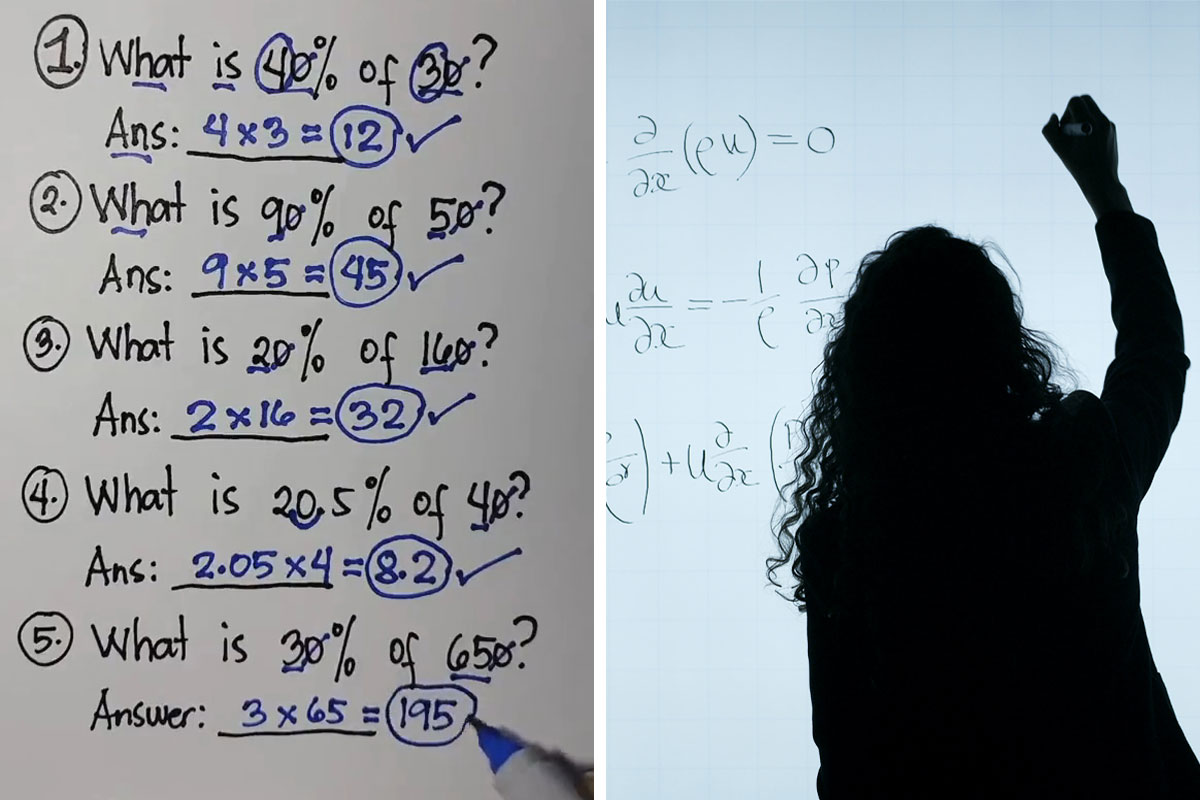 1. What is 40% of 30?
Ans: 4 x 3 = 12 ✓
2. What is 90% of 50?
Ans: 9 x 5 = 45 ✓
3. What is 20% of 160?
Ans: 2 x 16 = 32 ✓
4. What is 20.5% of 40?
Ans: 2.05 x 4 = 8.2 ✓
5. What is 30% of 650?
Answer: 3 x 65 = 195
∂/∂x (ρu) = 0
u ∂u/∂x = - 1/ρ ∂p/∂x
) + u ∂/∂x (